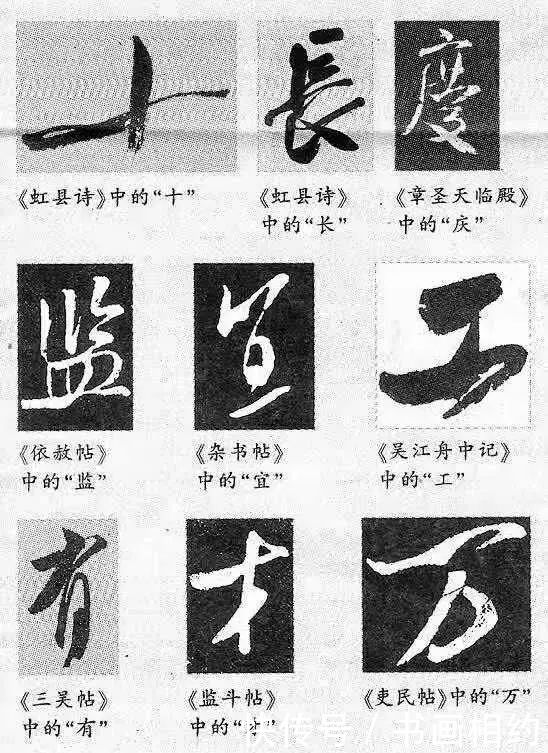 十
長
慶
《虹县诗》中的“十”
《虹县诗》
中的“长”
《章圣天临殿》
中的“庆”
监
宜
工
《依赦帖》
中的“监”
《杂书帖》
中的“宜”
《吴江舟中记》
中的“工”
有
才
万
《三吴帖》
中的“有”
《监斗帖》
中的“才”
《吏民帖》中的“万”
快传号/书画相约